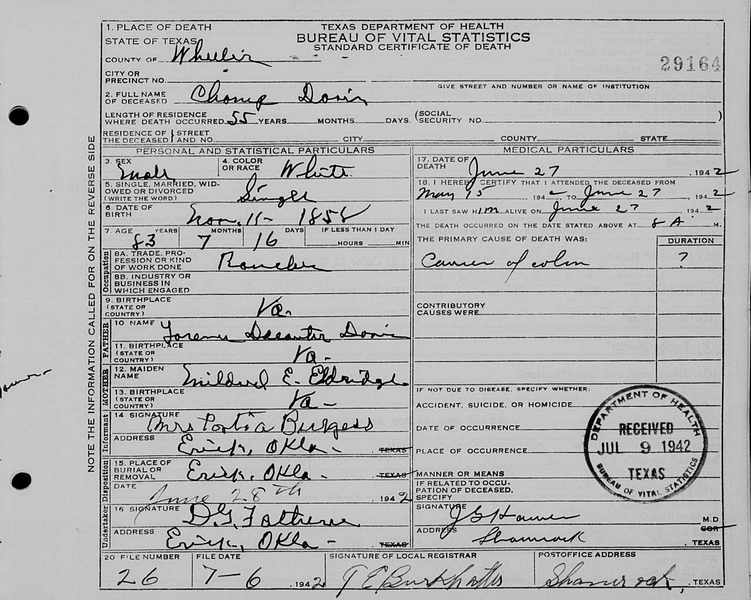 1. PLACE OF DEATH
TEXAS DEPARTMENT OF HEALTH
STATE OF TEXAS
BUREAU OF VITAL STATISTICS
STANDARD CERTIFICATE OF DEATH
COUNTY OF Wheeler
29164
CITY OR
PRECINCT NO.
GIVE STREET AND NUMBER OR NAME OF INSTITUTION
2. FULL NAME
OF DECEASED Champ Davis
LENGTH OF RESIDENCE
WHERE DEATH OCCURRED 55 YEARS MONTHS DAYS (SOCIAL SECURITY NO. )
RESIDENCE OF STREET
THE DECEASED AND NO. CITY COUNTY STATE
PERSONAL AND STATISTICAL PARTICULARS
3. SEX Male
4. COLOR OR RACE White
5. SINGLE, MARRIED, WIDOWED OR DIVORCED (WRITE THE WORD) Single
6. DATE OF BIRTH Nov. 11- 1858
7. AGE YEARS MONTHS DAYS IF LESS THAN 1 DAY
83 7 16 HOURS MIN.
Occupation
8A. TRADE, PROFESSION OR KIND OF WORK DONE Rancher
8B. INDUSTRY OR BUSINESS IN WHICH ENGAGED
9. BIRTHPLACE (STATE OR COUNTRY) Va.
FATHER
10. NAME Davis
11. BIRTHPLACE (STATE OR COUNTRY) Va-
MOTHER
12. MAIDEN NAME Mildred E. Eldridge
13. BIRTHPLACE (STATE OR COUNTRY) Va-
Informant
14 SIGNATURE Mrs Portia Burgess
ADDRESS Erick, Okla- TEXAS
Disposition
15. PLACE OF BURIAL OR REMOVAL Erick, Okla- TEXAS
DATE June 28th 1942
Undertaker
16 SIGNATURE D.G.
ADDRESS Erick, Okla- TEXAS
MEDICAL PARTICULARS
17. DATE OF DEATH June 27 , 1942
18. I HEREBY CERTIFY THAT I ATTENDED THE DECEASED FROM
May 15 1942 TO June 27 , 1942
I LAST SAW HIM ALIVE ON June 27 1942
THE DEATH OCCURRED ON THE DATE STATED ABOVE AT 8 A. M.
THE PRIMARY CAUSE OF DEATH WAS: DURATION
Cancer of colon ?
CONTRIBUTORY
CAUSES WERE.
IF NOT DUE TO DISEASE, SPECIFY WHETHER:
ACCIDENT, SUICIDE, OR HOMICIDE
DATE OF OCCURRENCE
PLACE OF OCCURRENCE
MANNER OR MEANS
IF RELATED TO OCCUPATION OF DECEASED, SPECIFY
SIGNATURE M.D
ADDRESS Shamrock , TEXAS
DEPARTMENT OF HEALTH
RECEIVED
JUL 9 1942
TEXAS
BUREAU OF VITAL STATISTICS
20 FILE NUMBER FILE DATE SIGNATURE OF LOCAL REGISTRAR POSTOFFICE ADDRESS
26 7-6 , 1942 Shamrock, TEXAS
NOTE THE INFORMATION CALLED FOR ON THE REVERSE SIDE